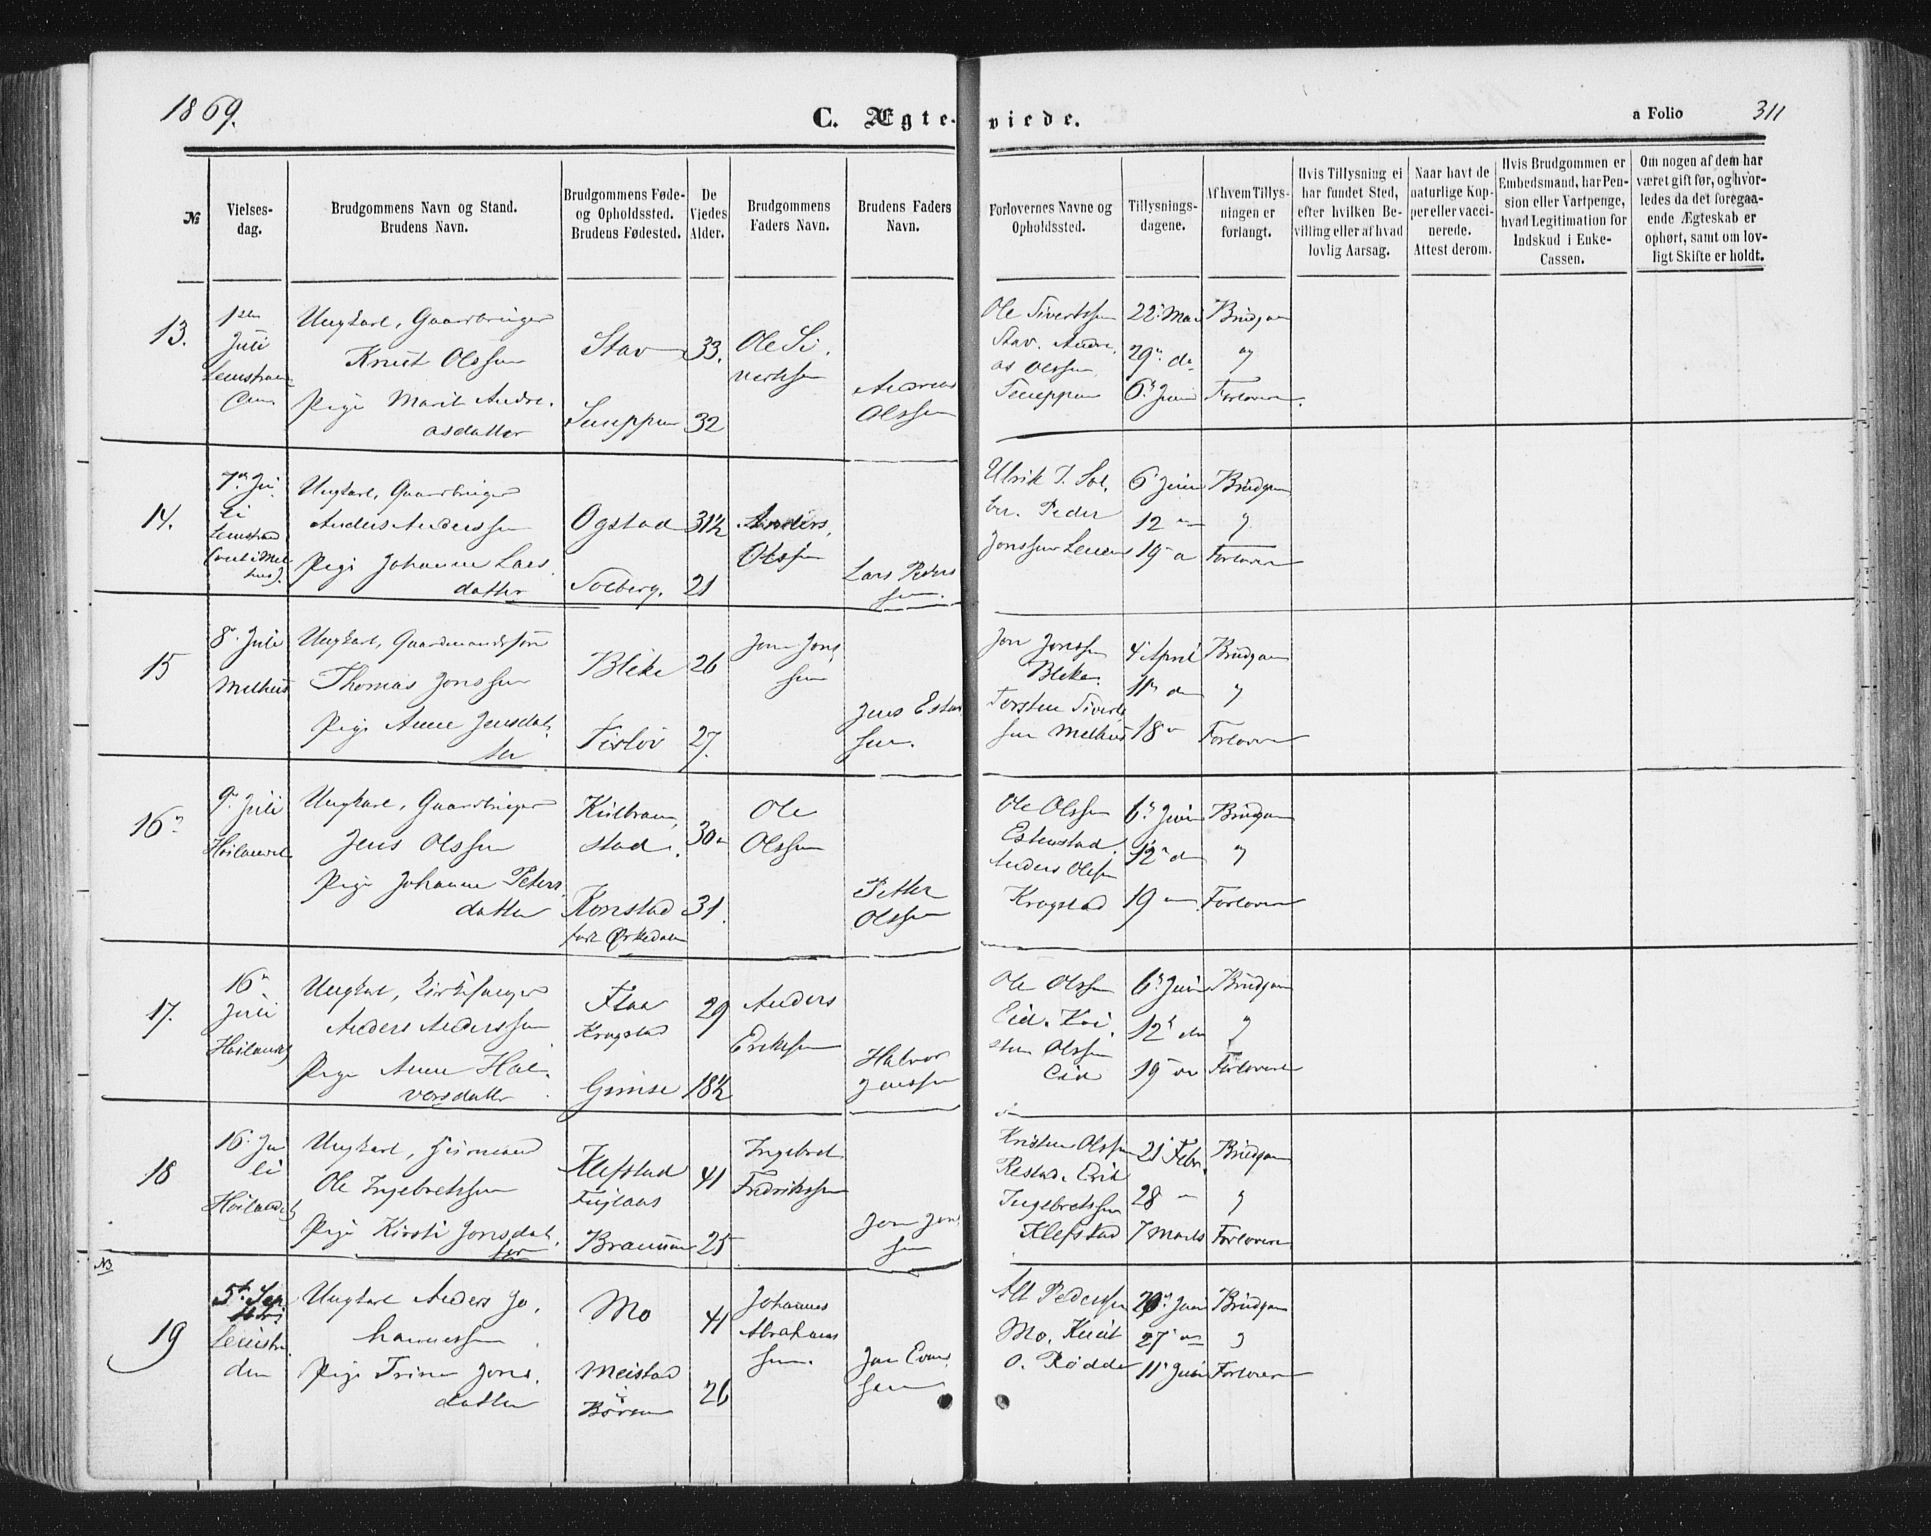 1869.
C. Ægte-viede.
a Folio
311
№
Vielses-
dag.
Brudgommens Navn og Stand.
Brudens Navn.
Brudgommens Føde-
og Opholdssted.
Brudens Fødested.
De
Viedes
Alder.
Brudgommens
Faders Navn.
Brudens Faders
Navn.
Forlovernes Navne og
Opholdssted.
Tillysnings-
dagene.
Af hvem Tillys-
ningen er
forlangt.
Hvis Tillysning ei
har fundet Sted,
efter hvilken Be-
villing eller af hvad
lovlig Aarsag.
Naar havt de
naturlige Kop-
per eller vacci-
nerede.
Attest derom.
Hvis Brudgommen er
Embedsmand, har Pen-
sion eller Vartpenge,
hvad Legitimation for
Indskud i Enke-
Cassen.
Om nogen af dem har
været gift før, og hvor-
ledes da det foregaa-
ende Ægteskab er
ophørt, samt om lov-
ligt Skifte er holdt.
13.
Juli
Ungkarl, Gaardbruger
Knut Olssen
Pige Marit Andre.
asdatter
Stav
33.
32
Ole Si.
vertsen
Andreas
Olssen
Ole Sivertssen
Stav. Andre.
as Olssen
22. Mai
29. do
6. Juni
Brudgom
og
Forlovere.
14.
7. Ju.
li
Ungkarl, Gaardbruger
Anders Anderssen
Pige Johanne Lars.
datter
Ogstad
Solberg.
31½
21
Anders.
Olssen
Lars Peders
sen.
Ulrik J. Sol.
ber. Peder
Jonssen
6 Juni
12
19
Brudgom
og
Forlovere
15
8. Juli
Melhus
Ungkarl, Gaardmandssøn
Thomas Jonssen
Pige Anne Jensdat.
ter
Bleke
26
27.
Jon Jons
sen
Jens Esten
sen.
Jon Jonssen
Bleke.
Torsten Siverts
sen Melhus
4 April
11 do
18
Brudgom
og
Forlovere
16
9. Juli
Høilandet
Ungkarl, Gaardbruger
Jens Olssen
Pige Johanne Peters.
datter
stad.
Konstad
Ørkedalen
30
31.
Ole
Olssen
Petter
Olssen
Ole Olssen
Estenstad.
Anders Olssen
Krogstad
6. Juni
12 do
19
Brudgom
og
Forlovere
17.
16
Juli
Høilandet
Ungkarl, Kirkesanger
Anders Anderssen
Pige Anne Hal.
vorsdatter
Flaa
Krogstad
Gimse
29
18½
Anders
Erikssen
Halvor
Jenssen
Ole Olssen
Eid. Kri.
sten Olssen
Eid
6. Juni
12 do
19
Brudgom
og
Forlovere
18
16. Ju
li
Høilandet
Ungkarl,
Ole Ingebretssen
Pige Kirsti Jonsdat.
ter
Klefstad
Fuglaas
41
25
Ingebret
Fredrikssen
Jon Jons
sen
Kristen Olssen
Restad. Erik
Ingebretssen
Klefstad
21 Febr.
28
7 Marts
Brudgom
og
Forlovere
NB
19
5. Sep
tbr
Leinstra.
den
Ungkarl Anders Jo.
hannessen
Pige Trine Jons.
datter
Mo
Meistad
i
Børsen
41
26
Johannes
Abrahams
sen.
Jon Evens
sen
Alt Pederssen
Mo. Knut
O. Rødde
20. Juni
27
11 Juni
Brudgom
og
Forlovere